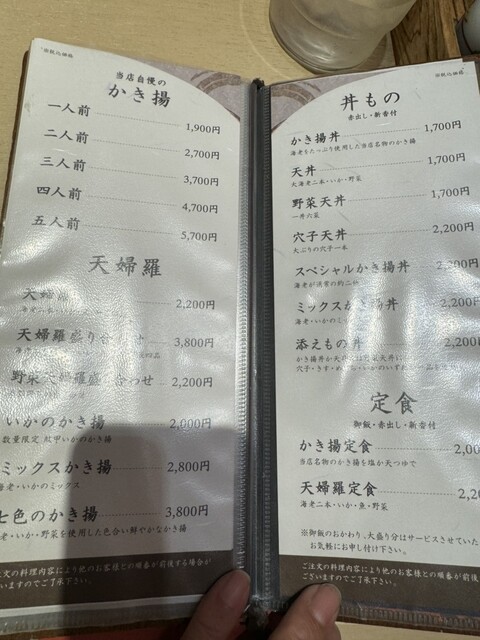 当店自慢の
かき揚
一人前 1,900円
二人前 2,700円
三人前 3,700円
四人前 4,700円
五人前 5,700円
天婦羅
天婦羅 2,200円
天婦羅盛り合 3,800円
野菜天婦羅盛 合わせ 2,200円
いかのかき揚 2,000円
数量限定 紋甲いかのかき揚
ミックスかき揚 2,800円
海老・いかのミックス
七色のかき揚 3,800円
海老・いか・野菜を使用した色合い鮮やかなかき揚
ご注文の料理内容により他のお客様との順番が前後する場合が
ございますのでご了承下さい。
丼もの
赤出し・新香付
かき揚丼 1,700円
海老をたっぷり使用した当店名物のかき揚
天丼 1,700円
大海老二本・いか・野菜
野菜天丼 1,700円
一丼六菜
穴子天丼 2,200円
大ぶりの穴子一本
スペシャルかき揚丼 2,200円
海老が通常の約二倍
ミックスかき揚丼 2,200円
海老・いかのミッ
添えもの丼 2,200
定食
御飯・赤出し・新香付
かき揚定食 2,00
当店名物のかき揚を塩か天つゆで
天婦羅定食 2,2
海老二本・いか・魚・野菜
※御飯のおかわり、大盛り分はサービスさせていた
お気軽にお申し付け下さい。
ご注文の料理内容により他のお客様との順番が前
ございますのでご了承下さい。